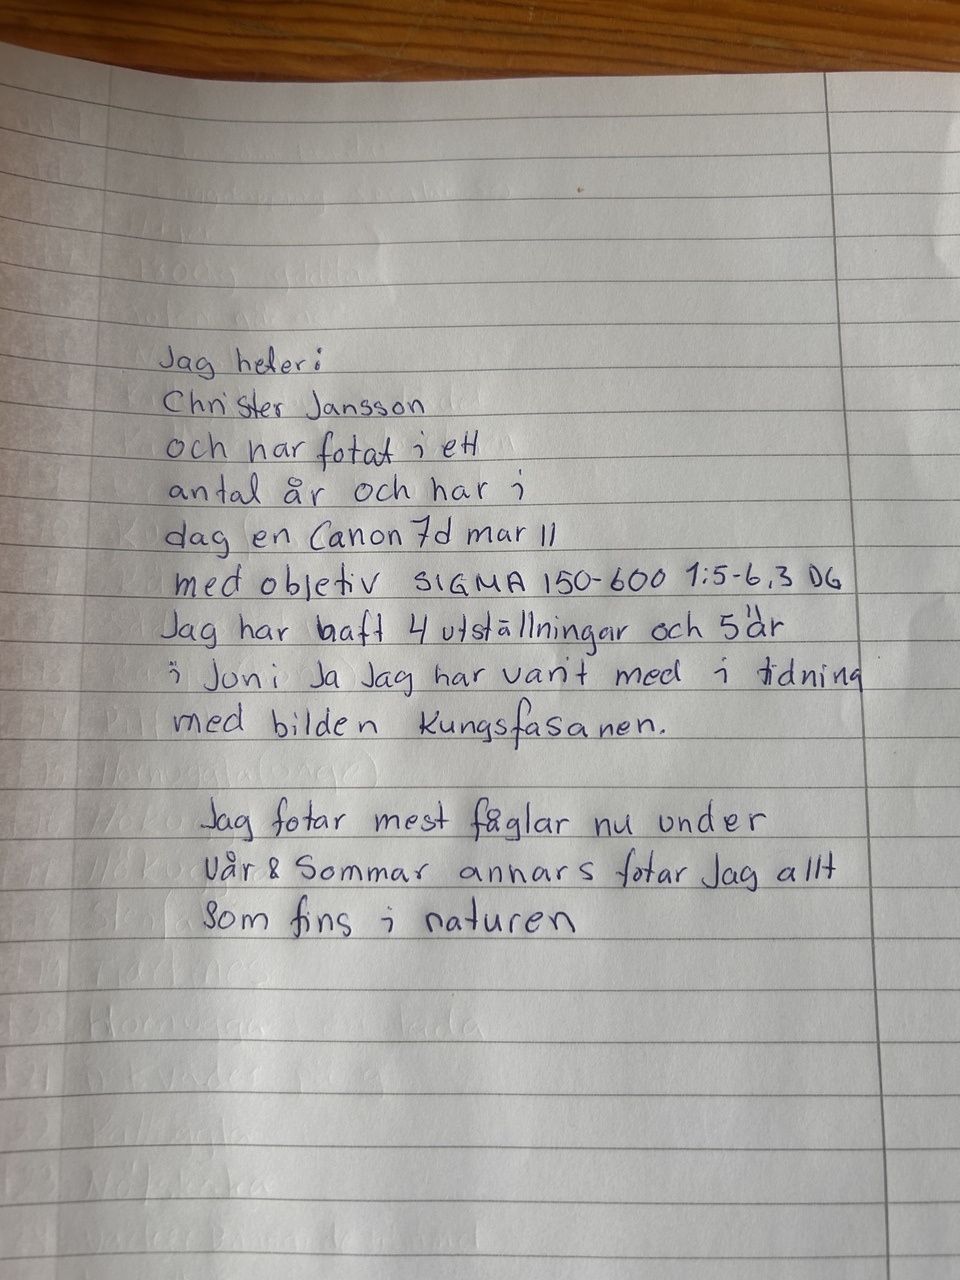 Jag heter:
Christer Jansson
och har fotat i ett
antal år och har i
dag en Canon 7d mar II
med objetiv SIGMA 150-600 1:5-6,3 DG
Jag har haft 4 utställningar och 5"är
i Joni Ja Jag har varit med i tidning
med bilden Kungsfasanen.
Jag fotar mest fåglar nu under
Vår & Sommar annars fotar Jag allt
Som fins i naturen